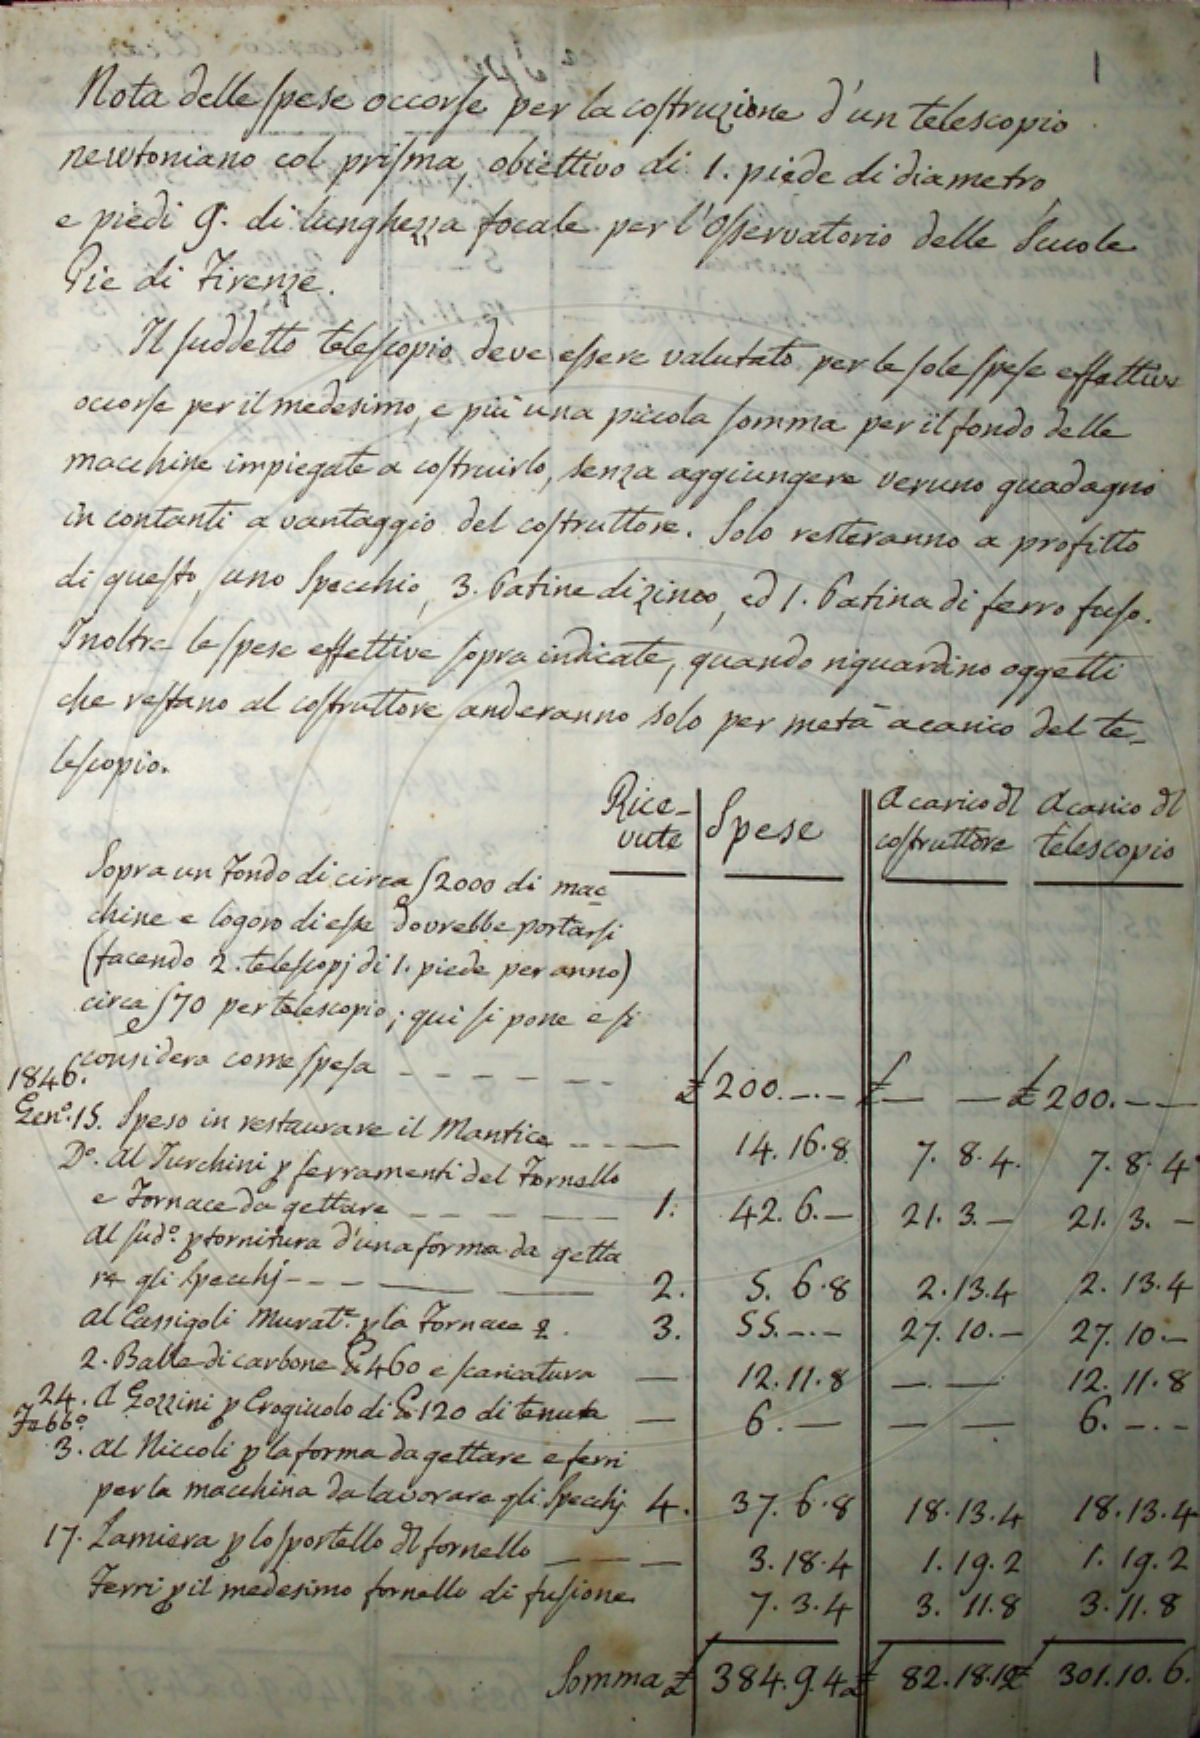 1
Nota delle spese occorse per la costruzione d'un telescopio
newtoniano col prisma, obiettivo di 1. piede di diametro
e piedi 9. di lunghezza focale per l'Osservatorio delle Scuole
Pie di Firenze.
Il suddetto telescopio deve essere valutato per le sole spese effettive
occorse per il medesimo, e più una piccola somma per il fondo delle
macchine impiegate a costruirlo, senza aggiungere veruno guadagno
in contanti a vantaggio del costruttore. Solo resteranno a profitto
di questo, uno Specchio, 3. Patine di zinco, ed 1. Patina di ferro fuso.
Inoltre le spese effettive sopra indicate, quando riguardino oggetti
che restano al costruttore anderanno solo per metà a carico del te-
lescopio.
Rice- Spese A carico dl A carico dl
vute costruttore telescopio
Sopra un Fondo di circa ʃ2000 di mac-
chine e logoro di esse dovrebbe portarsi
(facendo 2. telescopj di 1. piede per anno)
circa ʃ70 per telescopio; qui si pone e si
considera come spesa - - - - - - £ 200.-.- £ - - £ 200.- -
1846.
Gen.º 15. Speso in restaurare il Mantice - - - 14.16.8 7.8.4. 7.8.4
Dº. Al Turchini p ferramenti del Fornello
e Fornace da gettare - - - - 1. 42.6.- 21.3.- 21.3.-
Al sudº. p fornitura d'una forma da getta
re gli specchj - - - - 2. 5.6.8 2.13.4 2.13.4
Al Cassigoli Murat.e p la Fornace 2. 3. 55.-.- 27.10.- 27.10.-
2. Balle di carbone £ 460 e scaricatura - 12.11.8 - - 12.11.8
24. A Gozzini p Crogiuolo di £ 120 di tenuta - 6. - - - 6.-.-
Febbº.
3. Al Niccoli p la forma da gettare e ferri
per la macchina da lavorare gli Specchj 4. 37.6.8 18.13.4 18.13.4
17. Lamiera p lo sportello dl fornello - - - 3.18.4 1.19.2 1.19.2
Ferri p il medesimo fornello di fusione 7.3.4 3.11.8 3.11.8
Somma £ 384.9.4 £ 82.18.10 £ 301.10.6.